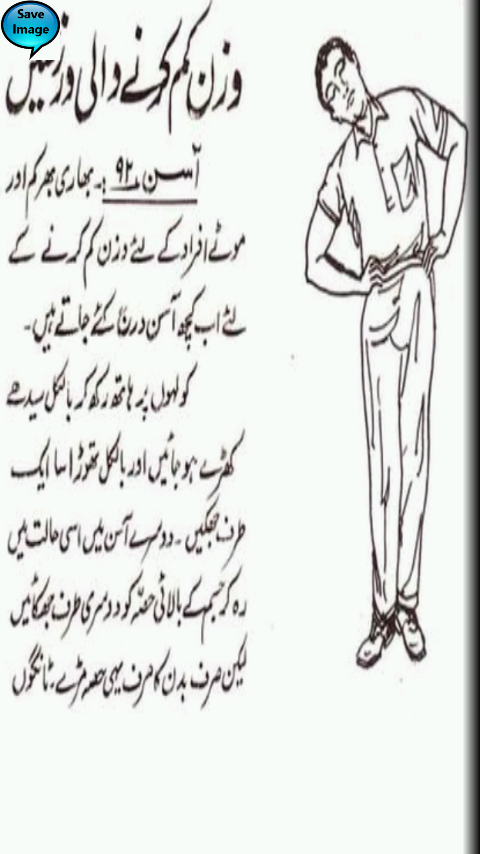 Save
Image
وزن کم کرنے والی ورزشیں
آسن ۹۲ :۔ بھاری بھرکم اور
موٹے افراد کے لئے وزن کم کرنے کے
لئے اب کچھ آسن درج کئے جاتے ہیں۔
کولہوں پر ہاتھ رکھ کر بالکل سیدھے
کھڑے ہو جائیں اور بالکل تھوڑا سا ایک
طرف جھکیں ۔ دوسرے آسن میں اسی حالت میں
رہ کر جسم کے بالائی حصّہ کو دوسری طرف جھکائیں
لیکن صرف بدن کا صرف یہی حصہ مڑے۔ ٹانگوں